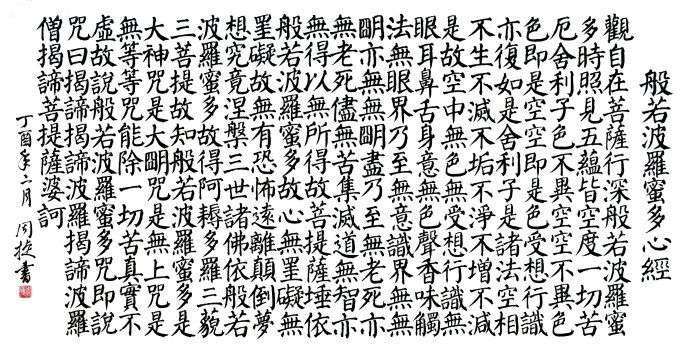 般若波羅蜜多心經
觀自在菩薩行深般若波羅蜜
多時照見五蘊皆空度一切苦
厄舍利子色不異空空不異色
色即是空空即是色受想行識
亦復如是舍利子是諸法空相
不生不滅不垢不淨不增不減
是故空中無色無受想行識無
眼耳鼻舌身意無色聲香味觸
法無眼界乃至無意識界無無
明亦無無明盡乃至無老死亦
無老死儘無苦集滅道無智亦
無得以無所得故菩提薩埵依
般若波羅蜜多故心無罣礙無
罣礙故無有恐怖遠離顛倒夢
想究竟涅槃三世諸佛依般若
波羅蜜多故得阿耨多羅三藐
三菩提故知般若波羅蜜多是
大神咒是大明咒是無上咒是
無等等咒能除一切苦真實不
虛故說般若波羅蜜多咒即說
咒曰揭諦揭諦波羅揭諦波羅
僧揭諦菩提薩婆訶
丁酉年二月 周捷書